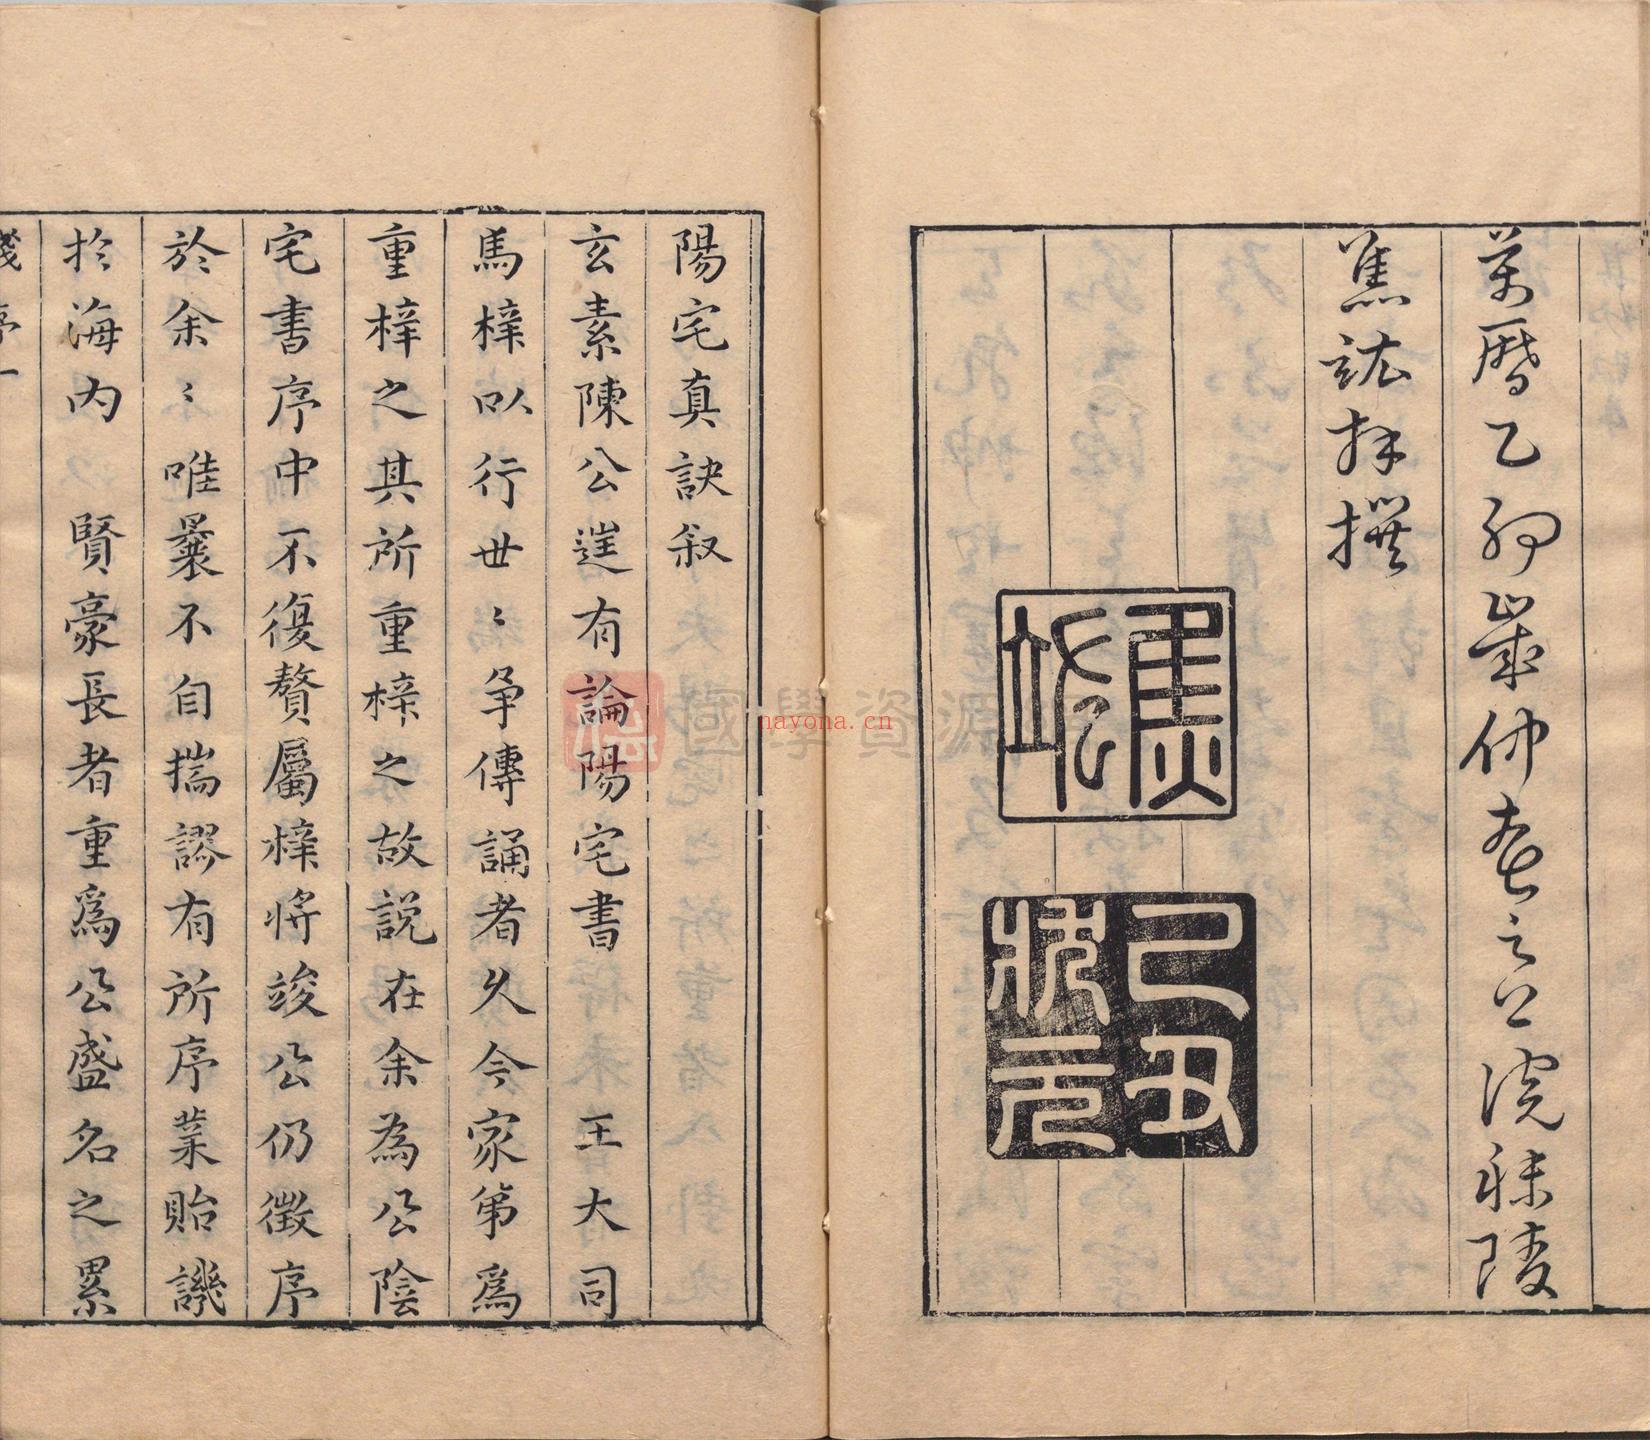 萬曆乙卯歲仲春之上浣秣陵
焦竑拜撰
焦竑
己丑狀元
陽宅真訣叙
玄素陳公有論陽宅書 王大司
馬梓以行世〻争傳誦者久今家第爲
重梓之其所重梓之故説在余為公陰
宅書序中不復贅屬梓将竣公仍徵序
於余〻唯曩不自揣謬有所序業貽譏
扵海内 賢豪長者重爲公盛名之累
國學資源
nayona.cn